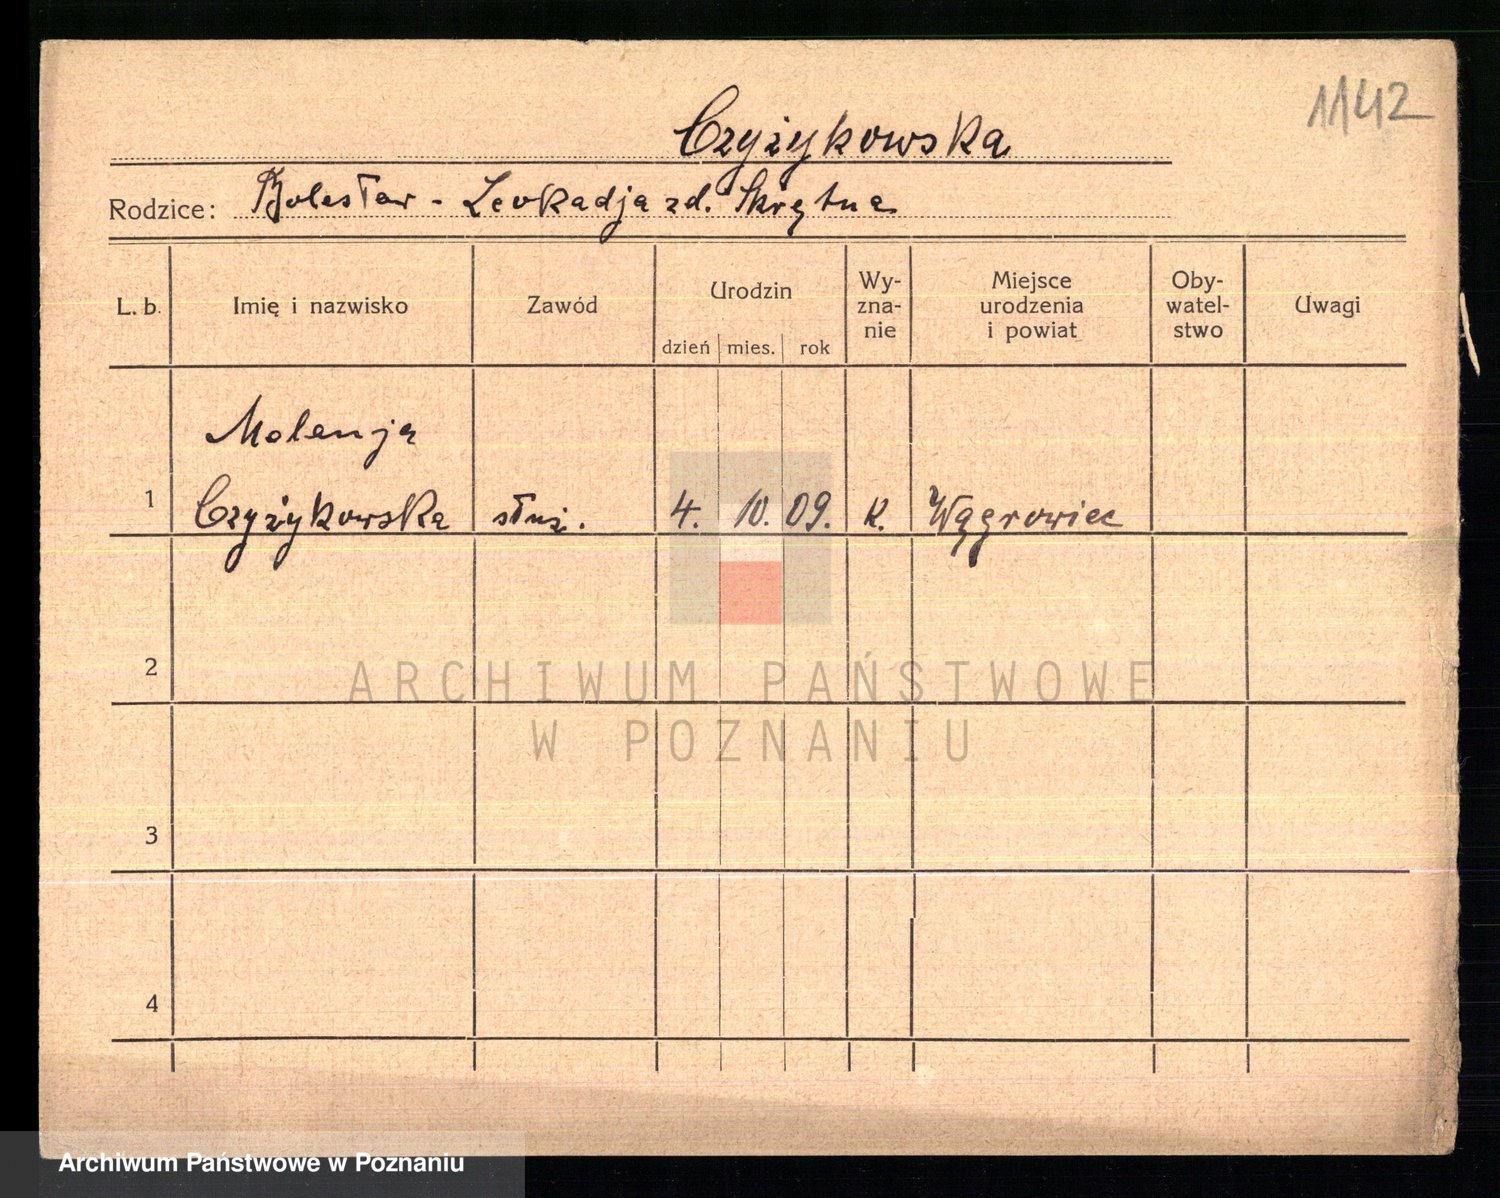 1142
Czyżykowska
Rodzice: Bolesław - Leokadja zd. Skrętna
L. b. Imię i nazwisko Zawód Urodzin Wy- Miejsce Oby- Uwagi
zna- urodzenia watel-
dzień mies. rok nie i powiat stwo
Melanja
1 Czyżykowska służ. 4. 10. 09. k. Wągrowiec
2
ARCHIWUM PAŃSTWOWE
W POZNANIU
3
4
Archiwum Państwowe w Poznaniu